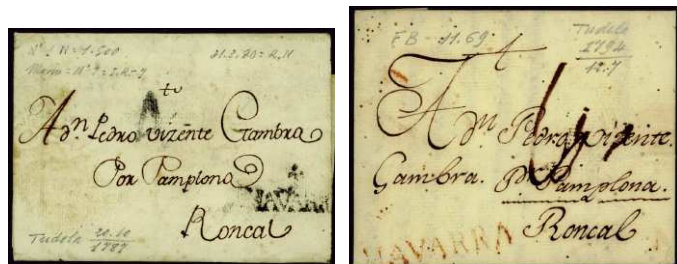 21.3.80 = R.N
A
A dn. Pedro Vizente Gambra
Por Pamplona
NAVARRA
Roncal
Tudela 20.10
1787
FB - 11.69
Tudela
1794
12.7
A dn Pedro Vizente.
Gambra. Pr Pamplona.
Roncal
NAVARRA